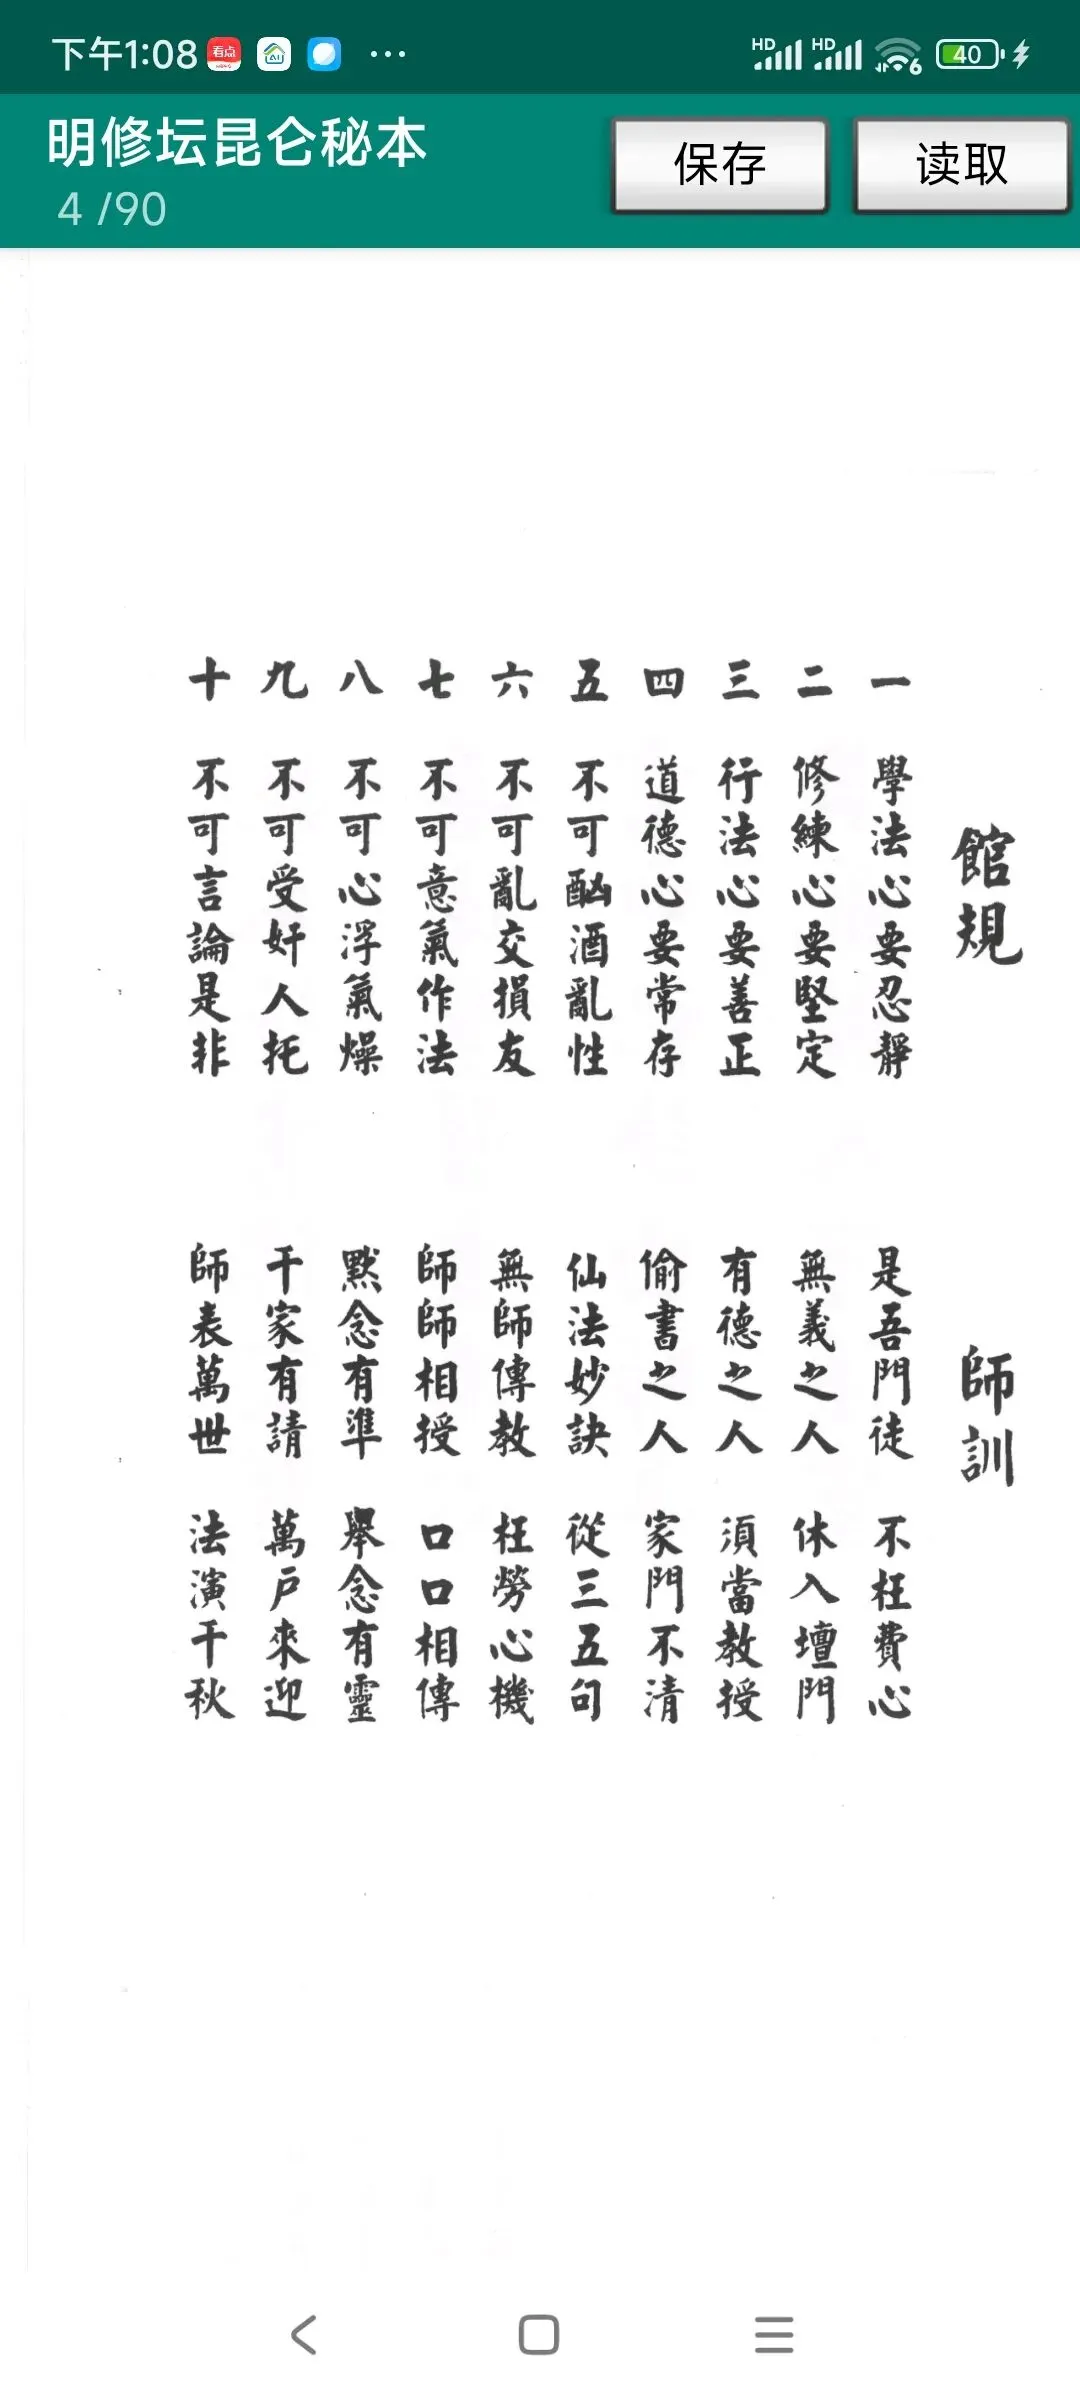 下午1:08
看点
AI
HD HD 6 40
明修坛昆仑秘本
4 /90
保存
读取
館規
一 學法心要忍靜
二 修練心要堅定
三 行法心要善正
四 道德心要常存
五 不可酗酒亂性
六 不可亂交損友
七 不可意氣作法
八 不可心浮氣燥
九 不可受奸人托
十 不可言論是非
師訓
是吾門徒 不枉費心
無義之人 休入壇門
有德之人 須當教授
偷書之人 家門不清
仙法妙訣 從三五句
無師傳教 枉勞心機
師師相授 口口相傳
默念有準 舉念有靈
千家有請 萬戶來迎
師表萬世 法演千秋